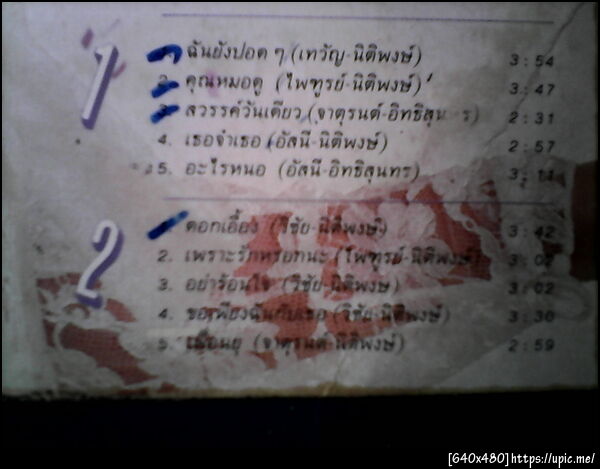 1
1. ฉันยังปอด ๆ (เทวัญ-นิติพงษ์) 3:54
2. คุณหมอดู (ไพฑูรย์-นิติพงษ์) 3:47
3. สวรรค์วันเดียว (จาตุรนต์-อิทธิสุนทร) 2:31
4. เธอจ๋าเธอ (อัสนี-นิติพงษ์) 2:57
5. อะไรหนอ (อัสนี-อิทธิสุนทร)
2
ดอกเอื้อง (วิชัย-นิติพงษ์) 3:42
2. เพราะรักหรอกนะ (ไพฑูรย์-นิติพงษ์)
3. อย่าร้อนใจ (วิชัย-นิติพงษ์) 3:02
4. ขอเพียงฉันกับเธอ (วิชัย-นิติพงษ์) 3:30
5. (จาตุรนต์-นิติพงษ์) 2:59
[640x480]https://upic.me/